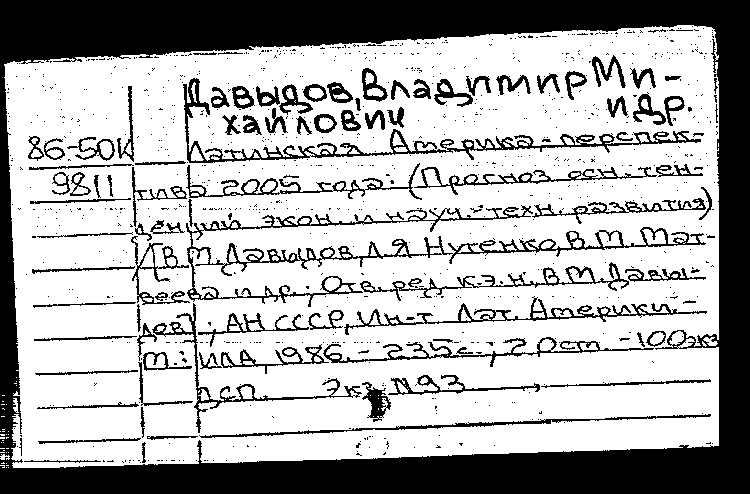 Давыдов, Владимир Ми-
хайлович и др.
86-50К Латинская Америка - перспек-
9811 тива 2005 года: (Прогноз осн. тен-
денций экон. и науч.-техн. развития)
/[В.М. Давыдов, Л.Я Нутенко, В.М. Мат-
веева и др.; Отв. ред. к.э.н. В.М. Давы-
дов]; АН СССР, Ин-т Лат. Америки. -
М.: ИЛА, 1986. - 235 с.; 2 -100экз
ДСП. Экз N93